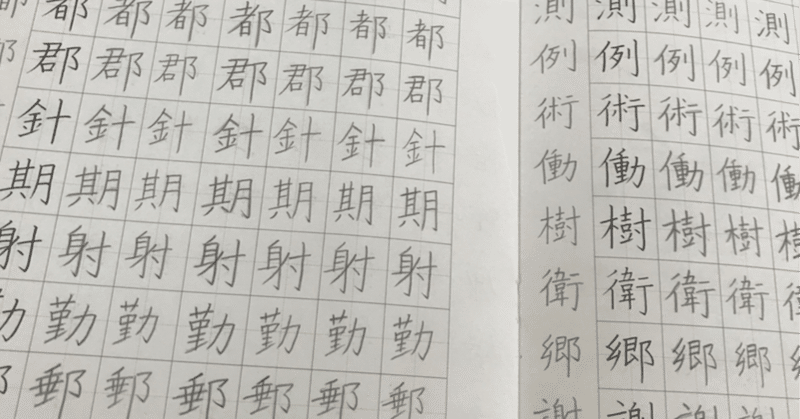 都都都都都都都
郡郡郡郡郡郡郡
針針針針針針針
期期期期期期期
射射射射射射射
勤勤勤勤勤勤
郵郵郵郵郵郵
測測測測測
例例例例例
術術術術術
働働働働働
樹樹樹樹樹
衛衛衛衛
郷郷郷郷
謝謝謝謝